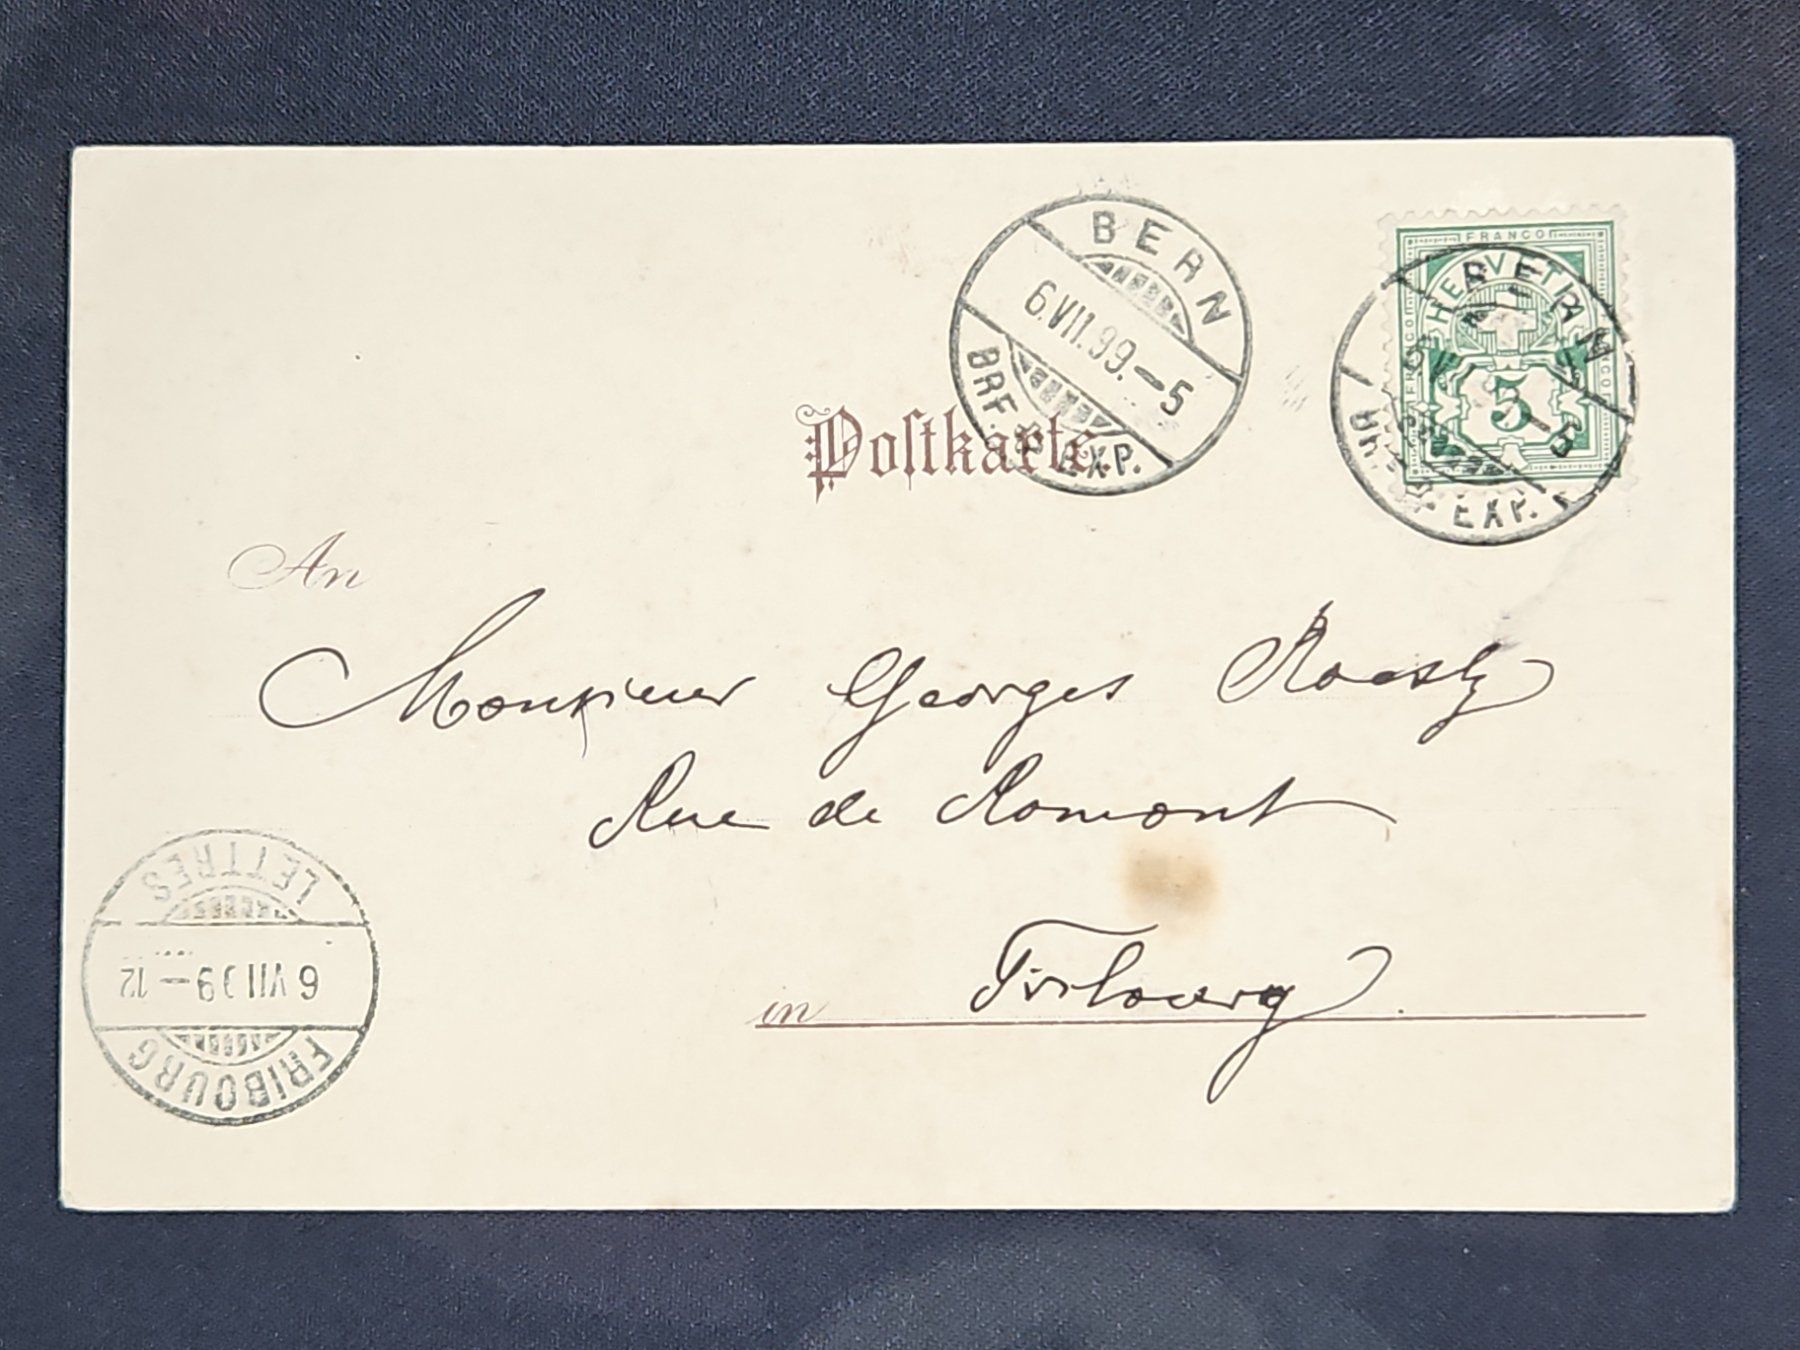 BERN
6.VII.99.–5
BRF. EXP.
FRANCO
HELVETIA
FRANCO
5
BERN
–5
EXP.
Postkarte.
An
Monsieur Georges Roesly
Rue de Romont
in Fribourg.
LETTRES
6 VII 99–12
FRIBOURG